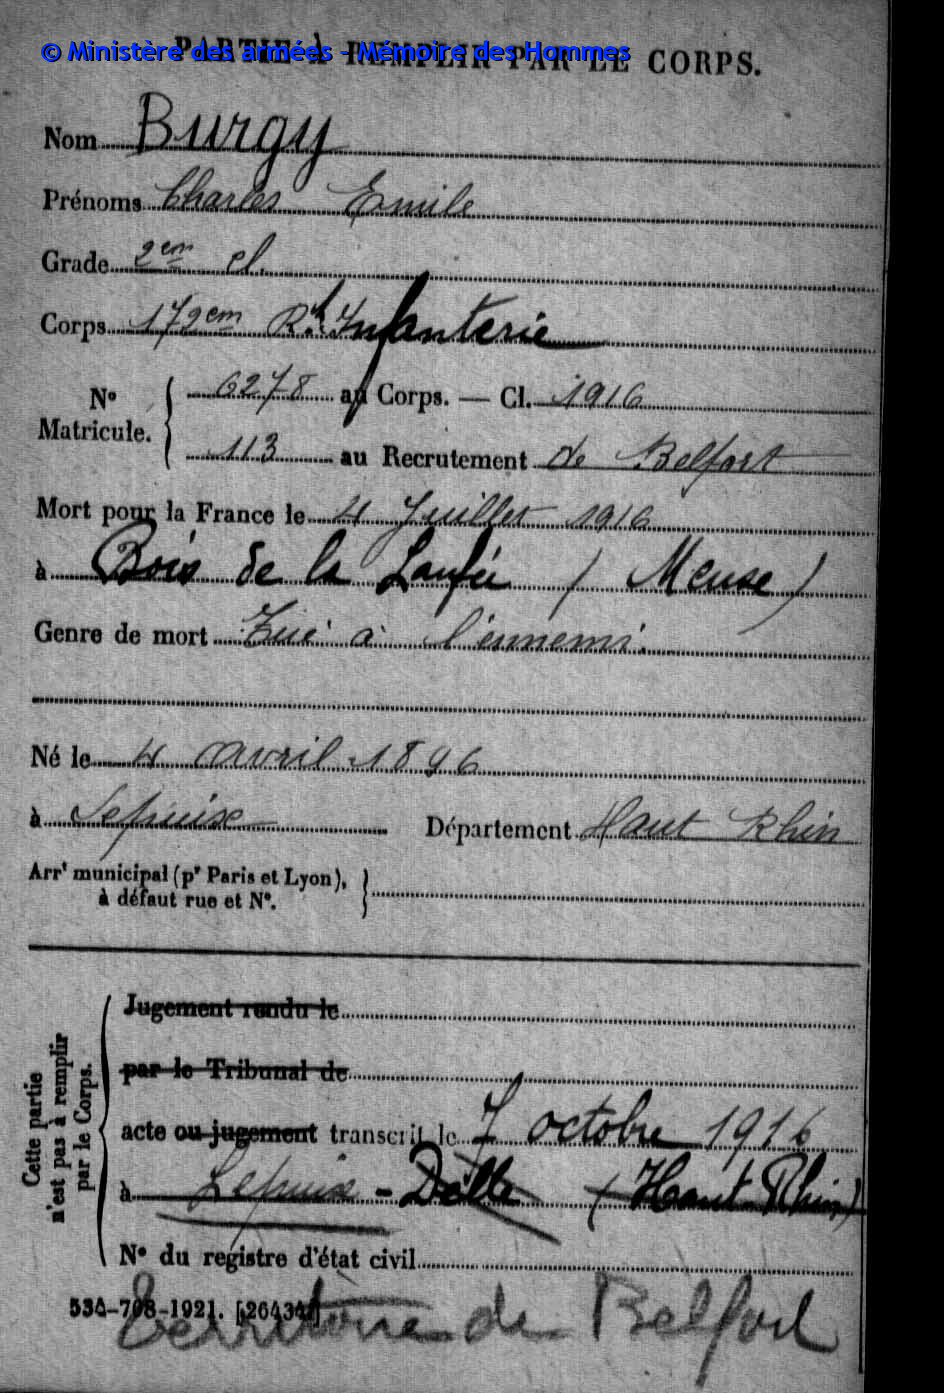 © Ministère des armées - Mémoire des Hommes
PARTIE À REMPLIR PAR LE CORPS.
Nom Burgy
Prénoms Charles Emile
Grade 2em cl.
Corps 172em Rt Infanterie
No Matricule. 6278 au Corps. — Cl. 1916
113 au Recrutement de Belfort
Mort pour la France le 4 Juillet 1916
à Bois de la Laufée (Meuse)
Genre de mort Tué à l'ennemi.
Né le 4 avril 1896
à Lepuix Département Haut Rhin
Arrt municipal (pr Paris et Lyon),
à défaut rue et No.
Cette partie n'est pas à remplir par le Corps.
Jugement rendu le
par le Tribunal de
acte ou jugement transcrit le 7 octobre 1916
à Lepuix - Delle (Haut Rhin)
No du registre d'état civil
534-708-1921. [26434]
Territoire de Belfort